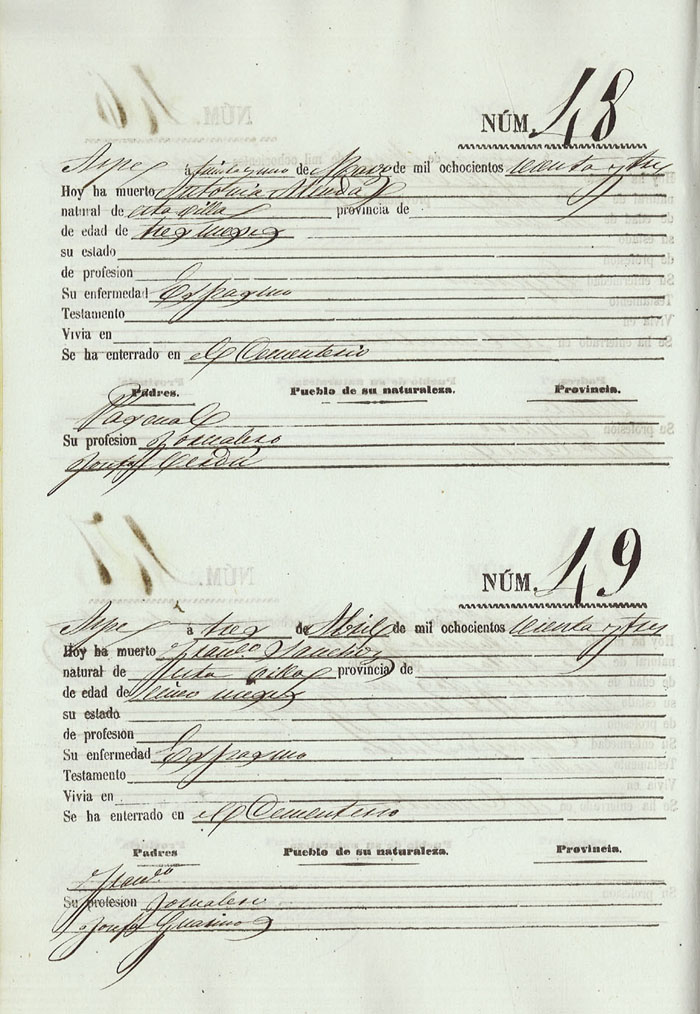 NÚM. 48
Aspe á treinta y uno de Marzo de mil ochocientos cuenta y tres
Hoy ha muerto Antonia
natural de esta villa provincia de
de edad de tres meses
su estado
de profesion
Su enfermedad Espasmo
Testamento
Vivia en
Se ha enterrado en el Cementerio
Padres. Pueblo de su naturaleza. Provincia.
Pascual
Su profesion Jornalero
Josefa Cerdá
NÚM. 49
Aspe á tres de Abril de mil ochocientos cuenta y tres
Hoy ha muerto Franco. Sanchez
natural de esta villa provincia de
de edad de cinco meses
su estado
de profesion
Su enfermedad Espasmo
Testamento
Vivia en
Se ha enterrado en el Cementerio
Padres Pueblo de su naturaleza. Provincia.
Franco.
Su profesion Jornalero
Josefa Guarinos